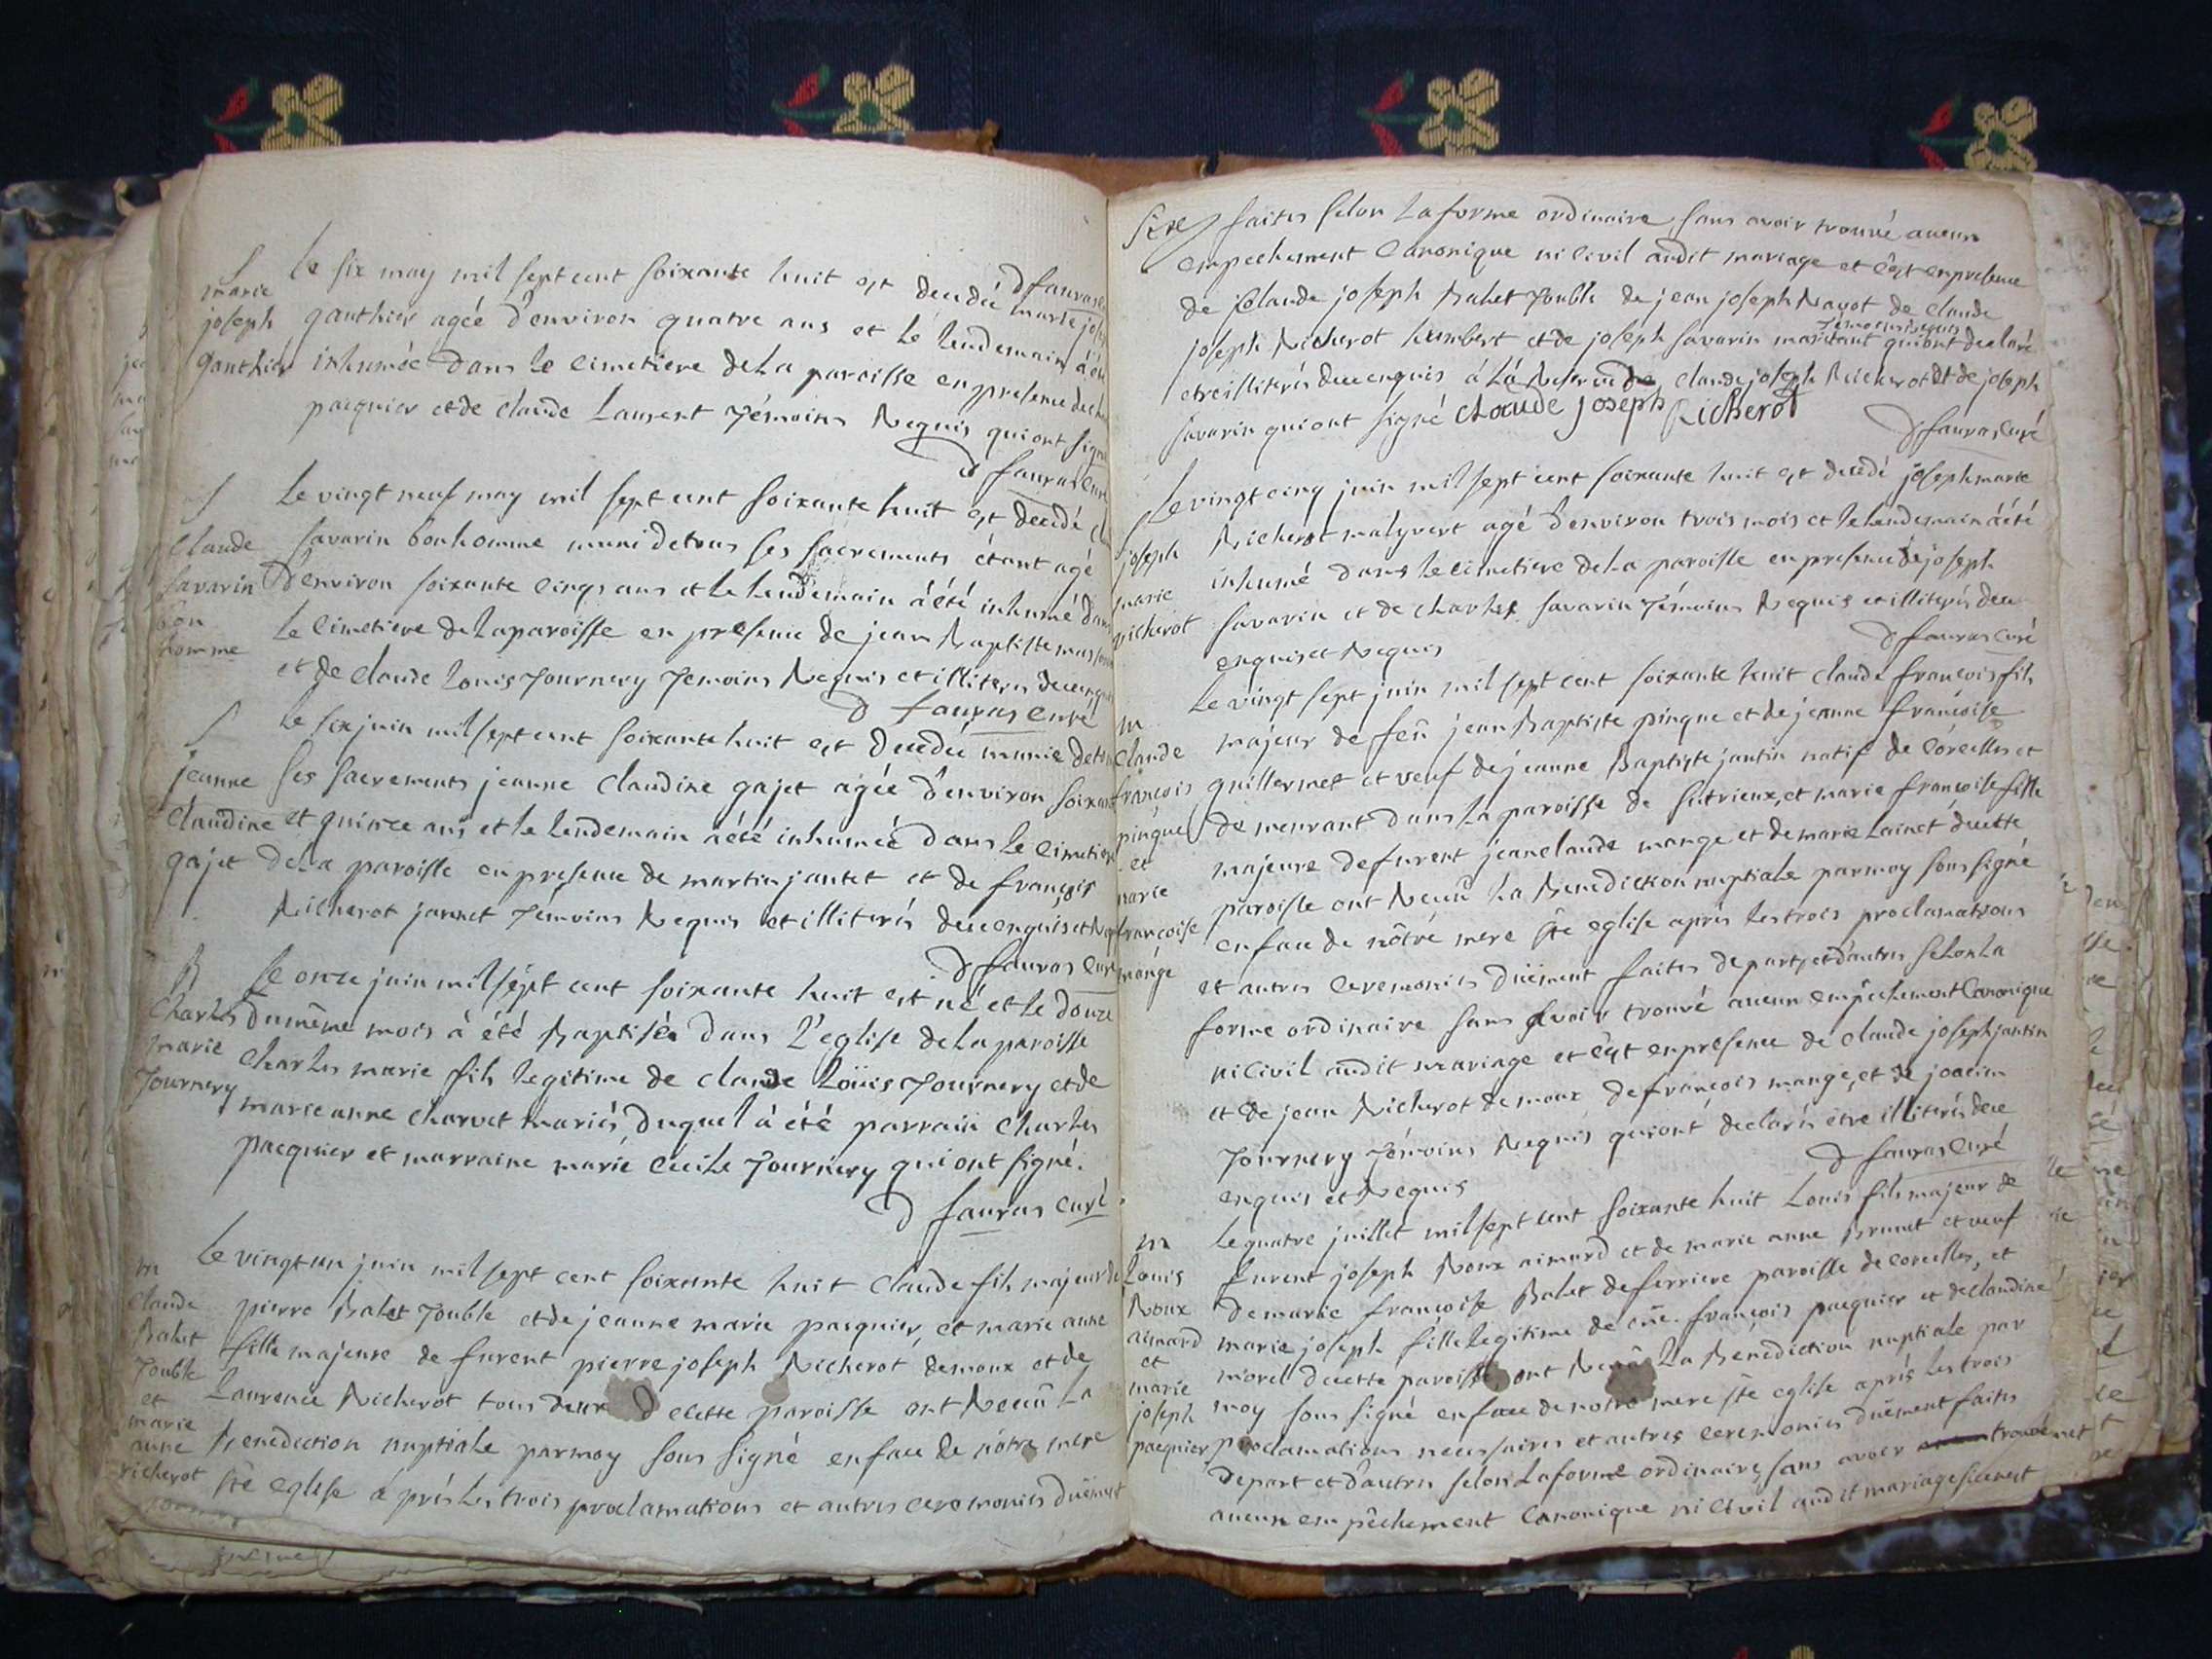 d fauras
Le six may mil sept cent soixante huit est decedée marie jos
marie
joseph
ganthier
ganthier agée d'environ quatre ans et le lendemain à été
inhumée dans le cimetiere de La paroisse en presence de
pacquier et de claude Laurent Témoins Requis qui ont signé
d fauras curé
Le vingt neuf may mil sept cent soixante huit est decedé
claude
savarin
bon
homme
savarin bonhomme muni de tous ses sacrements étant agé
d'environ soixante cinq ans et le lendemain à été inhumé dans
Le cimetiere de La paroisse en presence de jean Baptiste
et de claude Louis Tournery Temoins Requis et illiterés de ce enquis
d fauras curé
Le six juin mil sept cent soixante huit est decedée munie de tous
jeanne
claudine
gajet
ses sacrements jeanne claudine gajet agée d'environ soixante
et quinze ans et le lendemain à été inhumée dans le cimetiere
de La paroisse en presence de martin jantet et de françois
Richerot jannet Témoins Requis et illiterés de ce enquis et
d fauras curé
B
charles
marie
Tournery
Le onze juin mil sept cent soixante huit est né et le douze
du même mois à été Baptisé dans L'eglise de La paroisse
charles marie fils legitime de claude Loüis Tournery et de
marie anne charvet mariés, duquel à été parrain charles
pacquier et marraine marie cecile Tournery qui ont signé.
d fauras curé
m
claude
Balet
Touble
et
marie
anne
richerot
Le vingt un juin mil sept cent soixante huit claude fils majeur de
pierre Balet Touble et de jeanne marie pacquier, et marie anne
fille majeure de furent pierre joseph Richerot demoux et de
Laurence Richerot tous deux de cette paroisse ont Receû La
Benediction nuptiale par moy sous signé en face de nôtre mere
ste eglise à prés les trois proclamations et autres ceremonies düement
faites selon La forme ordinaire, sans avoir trouvé aucun
empechement canonique ni civil audit mariage et c'est en presence
de claude joseph Balet Touble de jean joseph Navot de claude
joseph Richerot humbert et de joseph savarin
qui ont declaré
etre illiterés de ce enquis à La Reserve de claude joseph Richerot et de joseph
savarin qui ont signé claude joseph Richerot
d fauras curé
Le vingt cinq juin mil sept cent soixante huit est decedé joseph marie
joseph
marie
richerot
Richerot malyvert agé d'environ trois mois et le lendemain à été
inhumé dans le cimetiere de La paroisse en presence de joseph
savarin et de charles savarin Témoins Requis et illiterés de ce
enquis et Requis
d fauras curé
m
claude
françois
pinque
et
marie
françoise
mange
Le vingt sept juin mil sept cent soixante huit claude françois fils
majeur de feû jean Baptiste pinque et de jeanne françoise
guillermet et veuf de jeanne Baptiste jantin natif de Corcelles et
demeurant dans La paroisse de sutrieux, et marie françoise fille
majeure de furent jean claude mange et de marie Lainet de cette
paroisse ont Receû La Benediction nuptiale par moy sous signé
en face de nôtre mere ste eglise aprés les trois proclamations
et autres ceremonies düement faites de part et d'autres selon La
forme ordinaire sans avoir trouvé aucun empêchement canonique
ni civil audit mariage et c'est en presence de claude joseph jantin
et de jean Richerot demoux de françois mange, et de joacim
Tournery Témoins Requis qui ont declarés etre illiterés de ce
enquis et Requis
d fauras curé
m
Louis
Roux
aimard
et
marie
joseph
pacquier
Le quatre juillet mil sept cent soixante huit Louis fils majeur de
furent joseph Roux aimard et de marie anne Brunet et veuf
de marie françoise Balet de ferriere paroisse de corcelles, et
marie joseph fille legitime de françois pacquier et de claudine
morel de cette paroisse ont Receû La Benediction nuptiale par
moy sous signé en face de notre mere ste eglise aprés les trois
proclamations necessaires et autres ceremonies düement faites
de part et d'autres selon La forme ordinaire, sans avoir trouvé
aucun empêchement canonique ni civil audit mariage